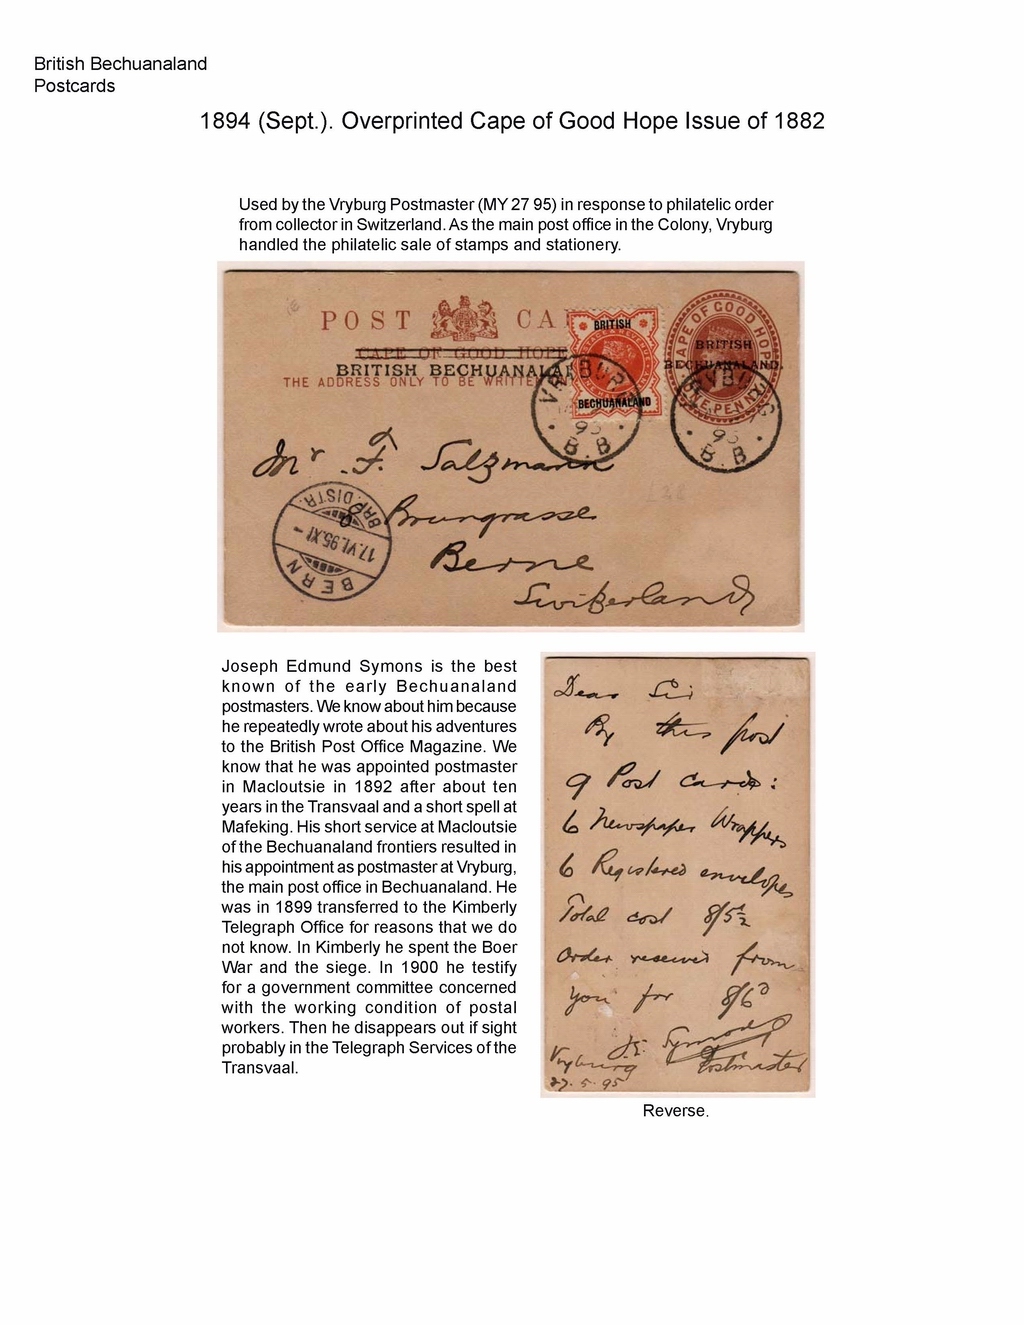 British Bechuanaland
Postcards
1894 (Sept.). Overprinted Cape of Good Hope Issue of 1882
Used by the Vryburg Postmaster (MY 27 95) in response to philatelic order
from collector in Switzerland. As the main post office in the Colony, Vryburg
handled the philatelic sale of stamps and stationery.
POST CA
CAPE OF GOOD HOPE
BRITISH BECHUANALA
THE ADDRESS ONLY TO BE WRITTEN
BRITISH
BECHUANALAND
CAPE OF GOOD HOPE
BRITISH
BECHUANALAND.
ONE PENNY
VRYBURG
95
B.B
VRYBURG
95
B.B
Mr F. Salzmann
8 Brungrasse
Berne
Switzerland
BRP. DISTR.
17.VI.95.XI-
BERN
Joseph Edmund Symons is the best
known of the early Bechuanaland
postmasters. We know about him because
he repeatedly wrote about his adventures
to the British Post Office Magazine. We
know that he was appointed postmaster
in Macloutsie in 1892 after about ten
years in the Transvaal and a short spell at
Mafeking. His short service at Macloutsie
of the Bechuanaland frontiers resulted in
his appointment as postmaster at Vryburg,
the main post office in Bechuanaland. He
was in 1899 transferred to the Kimberly
Telegraph Office for reasons that we do
not know. In Kimberly he spent the Boer
War and the siege. In 1900 he testify
for a government committee concerned
with the working condition of postal
workers. Then he disappears out if sight
probably in the Telegraph Services of the
Transvaal.
Dear Sir
By this post
9 Post cards:
6 Newspaper Wrappers
6 Registered envelopes
Total cost 8/5½
Order received from
you for 8/6d
J.E. Symons
Vryburg Postmaster
27.5.95
Reverse.